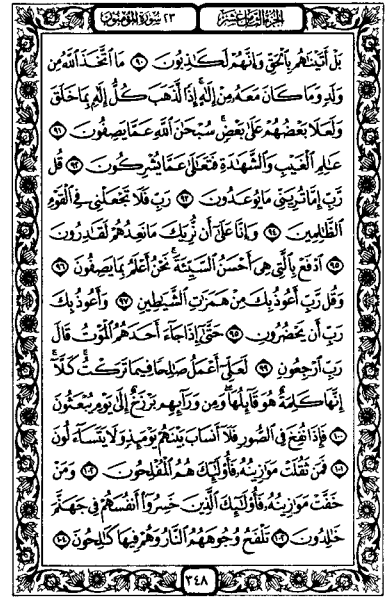 الجزء الثامن عشر
٢٣ سورة المؤمنون
بَلْ أَتَيْنَاهُم بِالْحَقِّ وَإِنَّهُمْ لَكَاذِبُونَ ٩٠ مَا اتَّخَذَ اللَّهُ مِن
وَلَدٍ وَمَا كَانَ مَعَهُ مِنْ إِلَهٍ إِذًا لَّذَهَبَ كُلُّ إِلَهٍ بِمَا خَلَقَ
وَلَعَلَا بَعْضُهُمْ عَلَى بَعْضٍ سُبْحَنَ اللَّهِ عَمَّا يَصِفُونَ ٩١
عَالِمِ الْغَيْبِ وَالشَّهَدَةِ فَتَعَالَى عَمَّا يُشْرِكُونَ ٩٢ قُل
رَّبِّ إِمَّا تُرِيَنِّي مَا يُوعَدُونَ ٩٣ رَبِّ فَلَا تَجْعَلْنِي فِي الْقَوْمِ
الظَّالِمِينَ ٩٤ وَإِنَّا عَلَى أَن نُّرِيَكَ مَا نَعِدُهُمْ لَقَادِرُونَ
٩٥ ادْفَعْ بِالَّتِي هِيَ أَحْسَنُ السَّيِّئَةَ نَحْنُ أَعْلَمُ بِمَا يَصِفُونَ ٩٦
وَقُل رَّبِّ أَعُوذُ بِكَ مِنْ هَمَزَاتِ الشَّيَاطِينِ ٩٧ وَأَعُوذُ بِكَ
رَبِّ أَن يَحْضُرُونِ ٩٨ حَتَّى إِذَا جَاءَ أَحَدَهُمُ الْمَوْتُ قَالَ
رَبِّ ارْجِعُونِ ٩٩ لَعَلِّي أَعْمَلُ صَالِحًا فِيمَا تَرَكْتُ كَلَّا
إِنَّهَا كَلِمَةٌ هُوَ قَائِلُهَا وَمِن وَرَائِهِم بَرْزَخٌ إِلَى يَوْمِ يُبْعَثُونَ
١٠٠ فَإِذَا نُفِخَ فِي الصُّورِ فَلَا أَنسَابَ بَيْنَهُمْ يَوْمَئِذٍ وَلَا يَتَسَاءَلُونَ
١٠١ فَمَن ثَقُلَتْ مَوَازِينُهُ فَأُوْلَئِكَ هُمُ الْمُفْلِحُونَ ١٠٢ وَمَنْ
خَفَّتْ مَوَازِينُهُ فَأُوْلَئِكَ الَّذِينَ خَسِرُوا أَنفُسَهُمْ فِي جَهَنَّمَ
خَالِدُونَ ١٠٣ تَلْفَحُ وُجُوهَهُمُ النَّارُ وَهُمْ فِيهَا كَالِحُونَ ١٠٤
٣٤٨